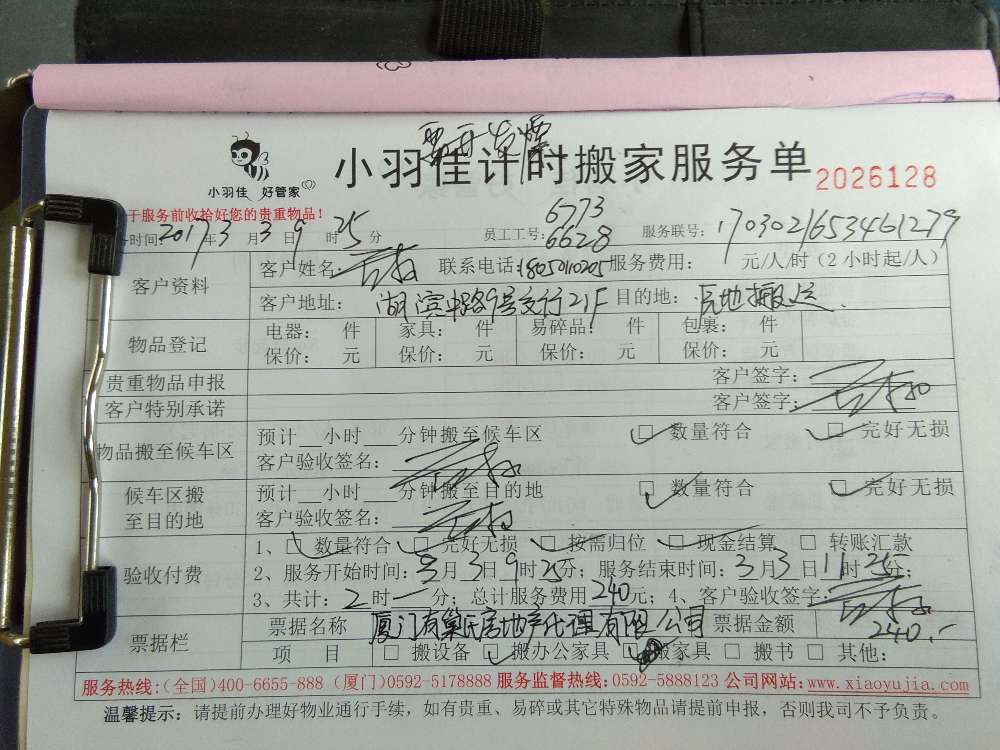 小羽佳 好管家
小羽佳计时搬家服务单 2026128
于服务前收拾好您的贵重物品!
务时间: 2017年3月3日9时25分 员工工号: 6773 6628 服务联号: 1703021653461279
客户资料 客户姓名: 联系电话: 18050110205 服务费用: 元/人/时(2小时起/人)
客户地址: 湖滨中路9号交行21F 目的地: 原地搬运
物品登记 电器: 件 家具: 件 易碎品: 件 包裹: 件
保价: 元 保价: 元 保价: 元 保价: 元
贵重物品申报 客户签字:
客户特别承诺 客户签字:
物品搬至候车区 预计__小时___分钟搬至候车区 □ 数量符合 □ 完好无损
客户验收签名:
候车区搬至目的地 预计__小时___分钟搬至目的地 □ 数量符合 □ 完好无损
客户验收签名:
验收付费 1、□ 数量符合 □ 完好无损 □ 按需归位 □ 现金结算 □ 转账汇款
2、服务开始时间: 3月3日9时25分; 服务结束时间: 3月3日11时25分;
3、共计: 2时一分; 总计服务费用240元; 4、客户验收签字:
票据栏 票据名称 厦门有巢氏房地产代理有限公司 票据金额 240.-
项 目 □ 搬设备 □ 搬办公家具 □ 搬家具 □ 搬书 □ 其他:
服务热线:(全国)400-6655-888 (厦门)0592-5178888 服务监督热线:0592-5888123 公司网站:www.xiaoyujia.com
温馨提示: 请提前办理好物业通行手续，如有贵重、易碎或其它特殊物品请提前申报，否则我司不予负责。